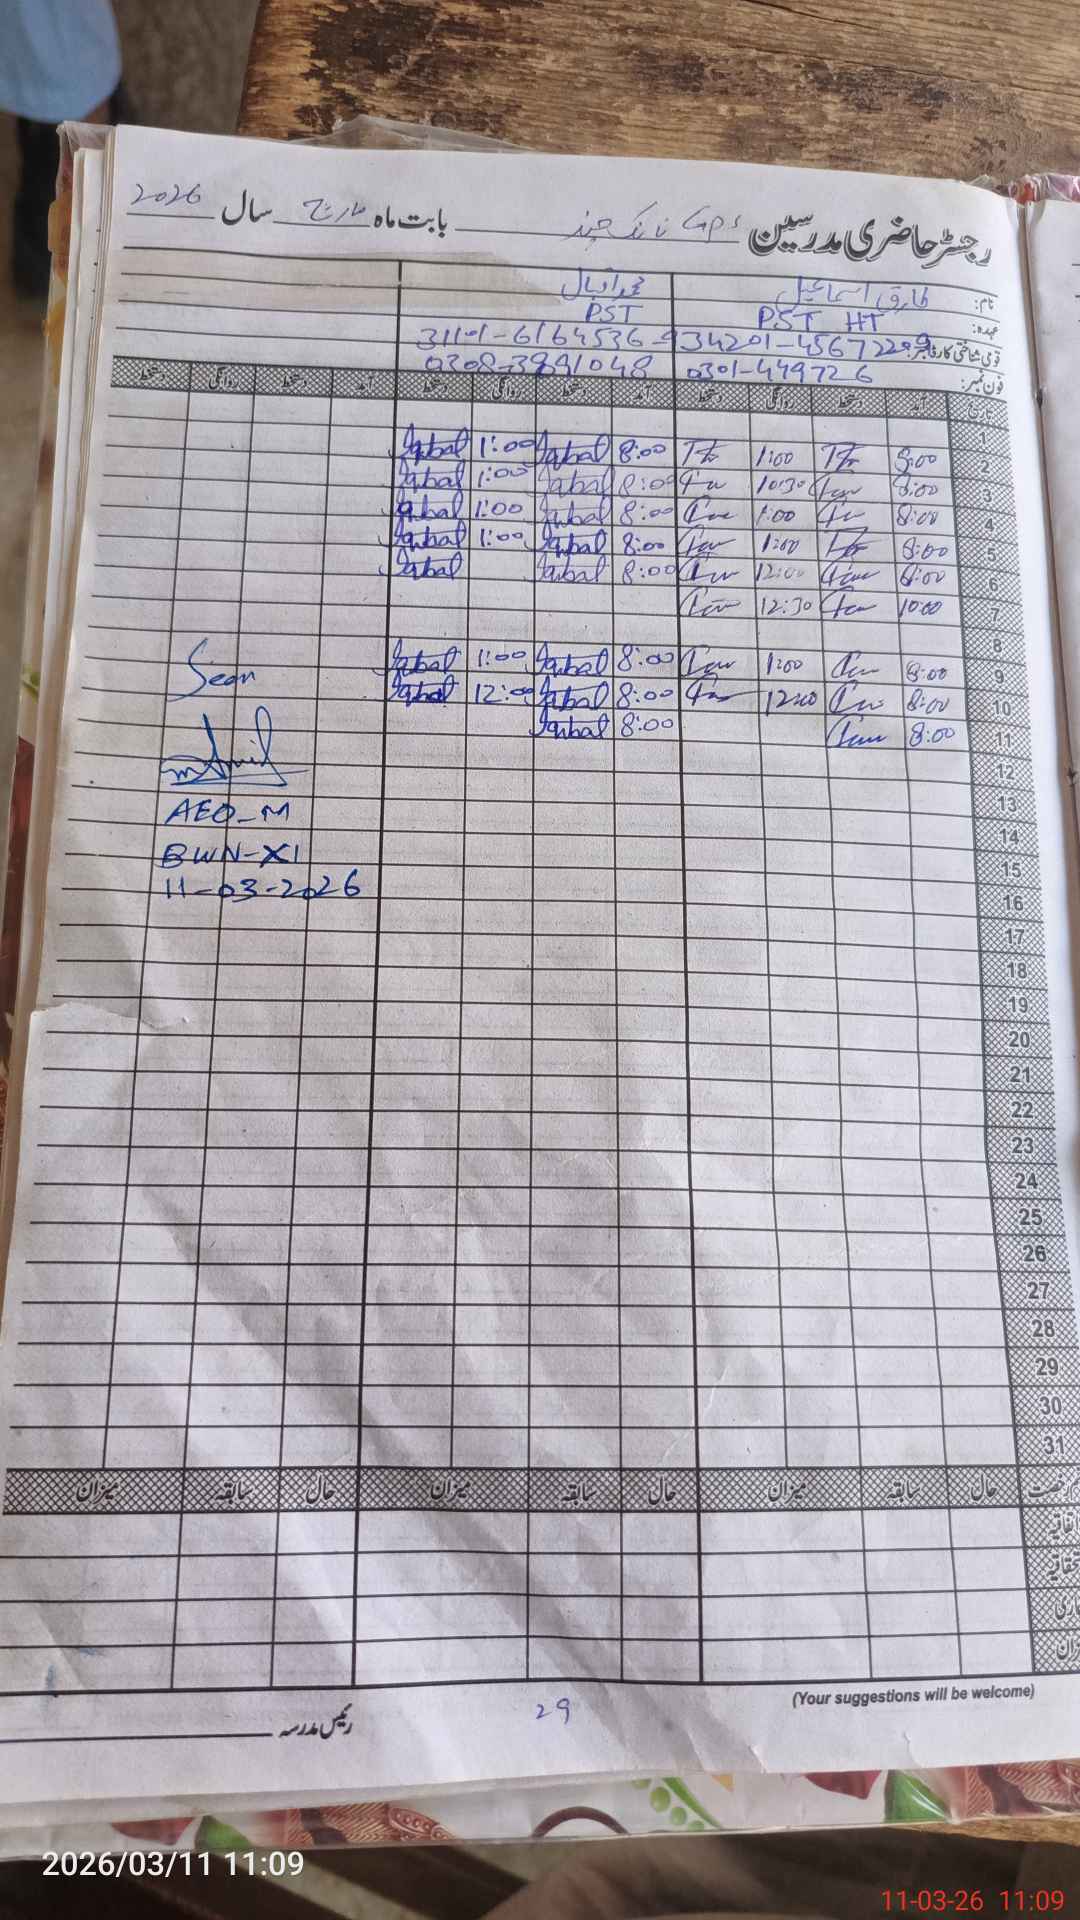 رجسٹر حاضری مدرسین GPS نانک چند بابت ماہ مارچ سال 2026
نام: طارق اسماعیل محمد اقبال
عہدہ: PST HT PST
قومی شناختی کارڈ نمبر: 31101-6164536-9
فون نمبر: 0301-449726 0308-3891048
تاریخ آمد دستخط روانگی دستخط آمد دستخط روانگی دستخط آمد دستخط روانگی دستخط
1
2 8:00 1:00 8:00 Iqbal 1:00 Iqbal
3 8:00 10:30 8:00 Iqbal 1:00 Iqbal
4 8:00 1:00 8:00 Iqbal 1:00 Iqbal
5 8:00 1:00 8:00 Iqbal 1:00 Iqbal
6 8:00 12:00 8:00 Iqbal Iqbal
7 10:00 12:30
8
9 8:00 1:00 8:00 Iqbal 1:00 Iqbal
10 8:00 12:00 8:00 Iqbal 12:00 Iqbal
11 8:00 8:00 Iqbal
Seen
12
13
AEO-M
14
BWN-XI
15
11-03-2026
16
17
18
19
20
21
22
23
24
25
26
27
28
29
30
31
حال سابقہ میزان حال سابقہ میزان حال سابقہ میزان
(Your suggestions will be welcome)
29
رئیس مدرسہ
2026/03/11 11:09
11-03-26 11:09